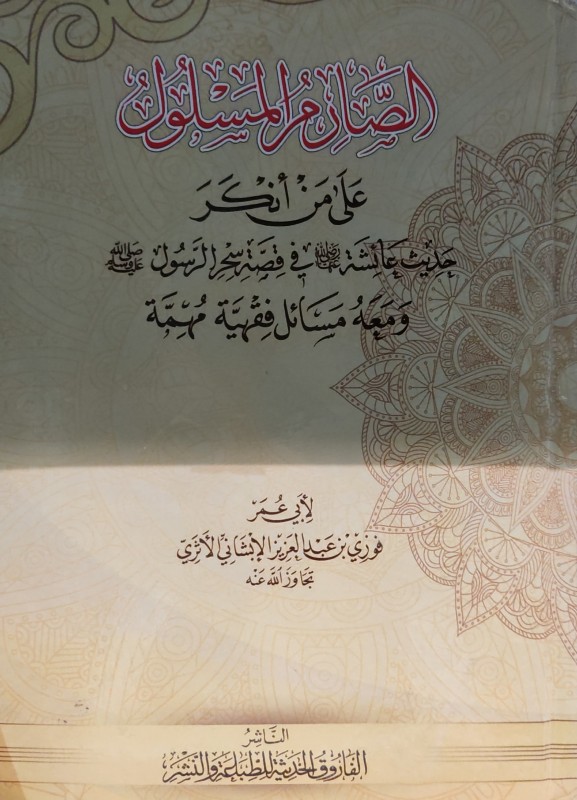 الصَّارِمُ المَسْلُولُ
عَلَى مَنْ أَنْكَرَ
حَدِيثَ عَائِشَةَ رضي الله عنها فِي قِصَّةِ سِحْرِ الرَّسُولِ صلى الله عليه وسلم
وَمَعَهُ مَسَائِل فِقْهِيَّة مُهِمَّة
لِأَبِي عُمَر
فوزي بن عبد العزيز الإنشاني الأثري
تجاوز الله عنه
النَّاشِرُ
الفَارُوقُ الحَدِيثَةُ لِلطِّبَاعَةِ وَالنَّشْر